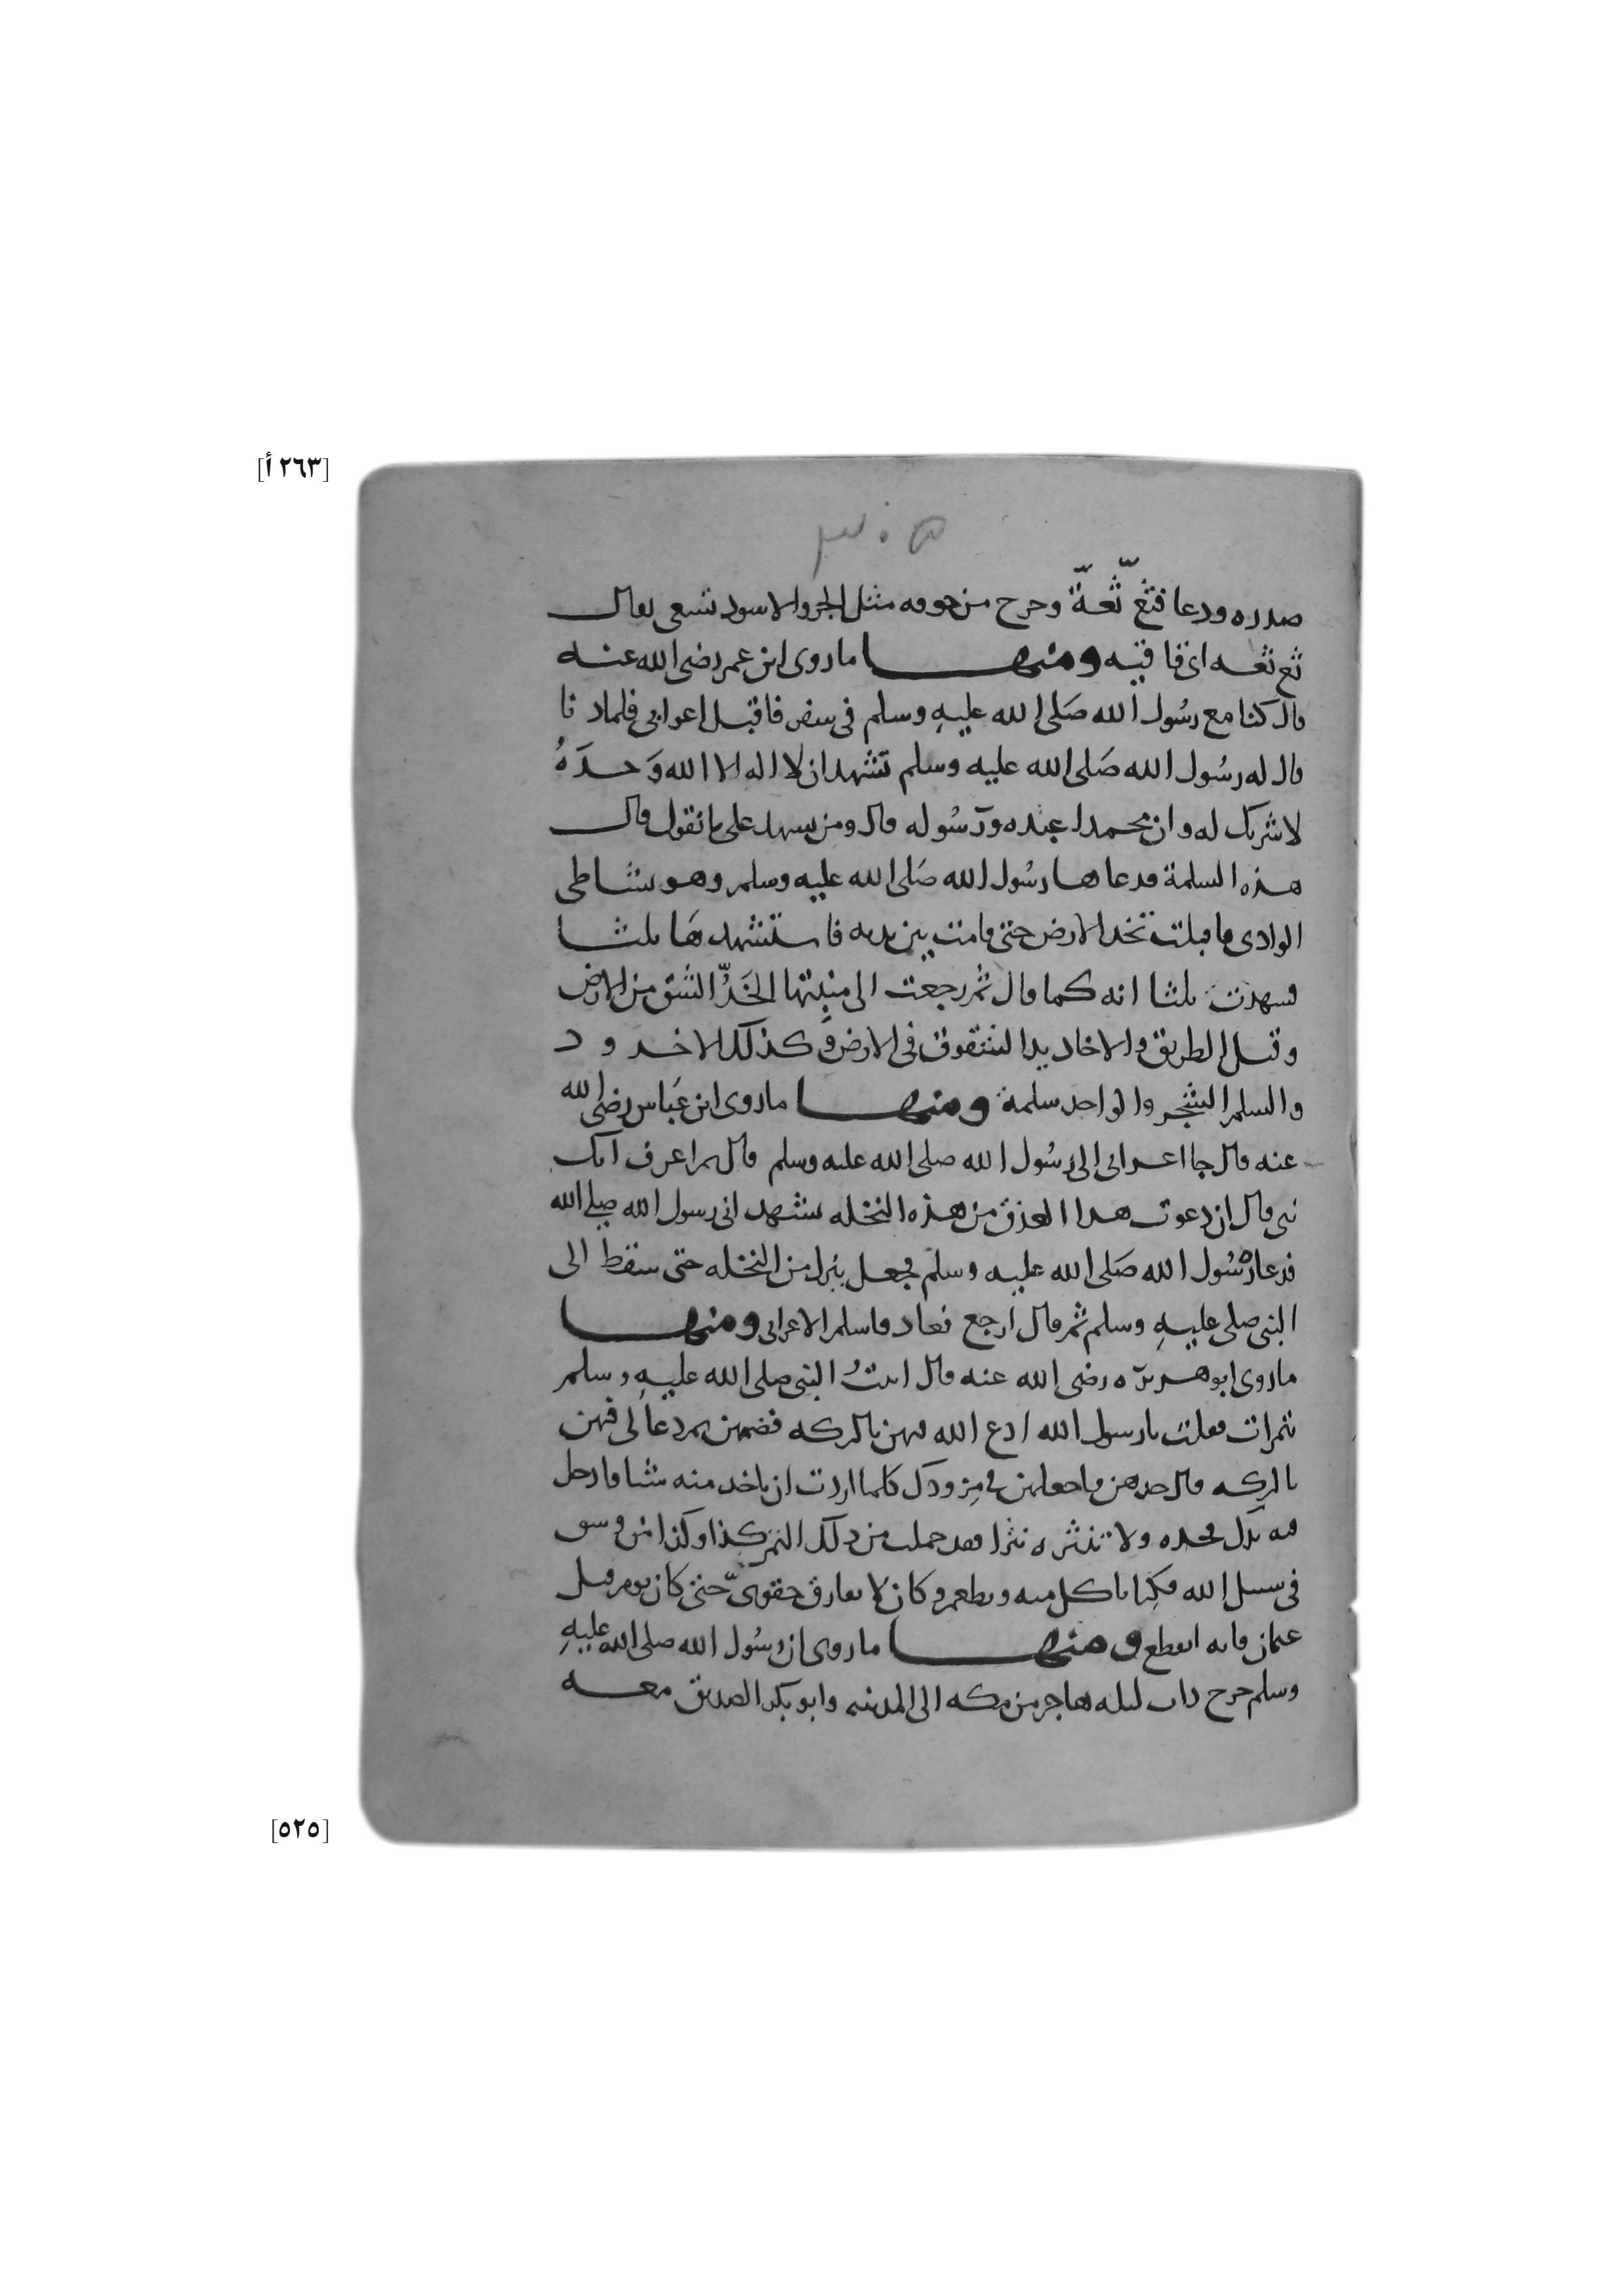 [٢٦٣ أ]
صدره ودعا فثع ثعة وخرج من جوفه مثل الجرو الاسود تسعى يقال
ثع ثعه اى قا قيه ومنها ما روى ابن عمر رضى الله عنه
قال كنا مع رسول الله صلى الله عليه وسلم فى سفر فاقبل اعرابى فلما دنا
قال له رسول الله صلى الله عليه وسلم تشهد ان لا اله الا الله وحده
لا شريك له وان محمدا عبده ورسوله قال ومن يشهد على ما تقول قال
هذه السلمة فدعاها رسول الله صلى الله عليه وسلم وهو بشاطى
الوادى فاقبلت تخد الارض حتى قامت بين يديه فاستشهدها ثلثا
فشهدت ثلثا انه كما قال ثم رجعت الى منبتها الخد الشق من الارض
وقيل الطريق والاخاديد الشقوق فى الارض وكذلك الاخدود
والسلم الشجر والواحد سلمة ومنها ما روى ابن عباس رضى الله
عنه قال جا اعرابى الى رسول الله صلى الله عليه وسلم قال بم اعرف انك
نبى قال ان دعوت هذا العذق من هذه النخله يشهد انى رسول الله صلى الله
فدعاه رسول الله صلى الله عليه وسلم فجعل ينزل من النخله حتى سقط الى
النبى صلى عليه وسلم ثم قال ارجع فعاد فاسلم الاعرابى ومنها
ما روى ابو هريرة رضى الله عنه قال اتيت النبى صلى الله عليه وسلم
بتمرات فقلت يا رسول الله ادع الله فيهن بالبركه فضمهن ثم دعا لى فيهن
بالبركه قال خذهن فاجعلهن فى مزودك كلما اردت ان تاخذ منه شيا فادخل
فيه يدك فخذه ولا تنثره نثرا فقد حملت من ذلك التمر كذا وكذا من وسق
فى سبيل الله فكنا ناكل منه ونطعم وكان لا يفارق حقوى حتى كان يوم قتل
عثمان فانه انقطع ومنها ما روى ان رسول الله صلى الله عليه
وسلم خرج ذات ليله هاجر من مكه الى المدينه وابو بكر الصديق معه
[٥٢٥]